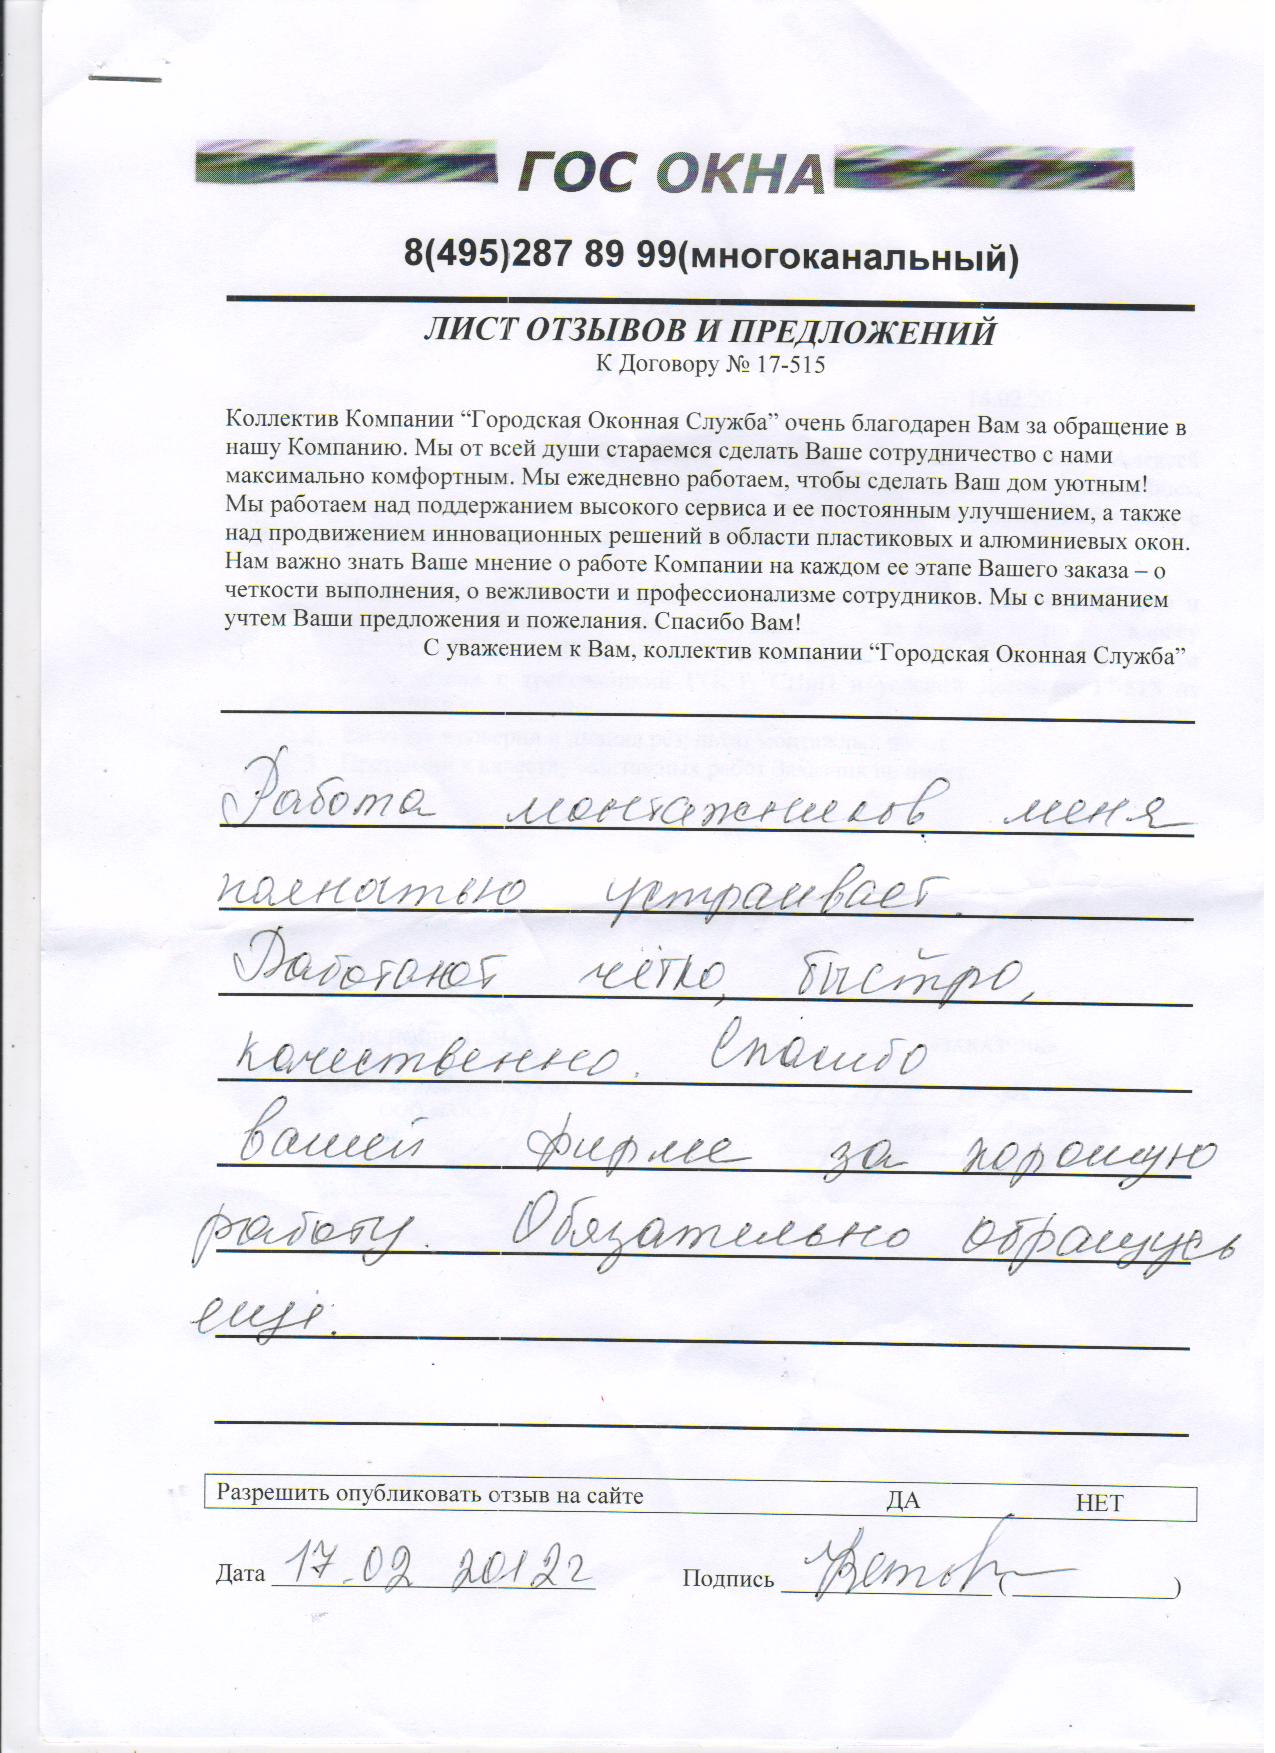 ГОС ОКНА
8(495)287 89 99(многоканальный)
ЛИСТ ОТЗЫВОВ И ПРЕДЛОЖЕНИЙ
К Договору № 17-515
Коллектив Компании “Городская Оконная Служба” очень благодарен Вам за обращение в
нашу Компанию. Мы от всей души стараемся сделать Ваше сотрудничество с нами
максимально комфортным. Мы ежедневно работаем, чтобы сделать Ваш дом уютным!
Мы работаем над поддержанием высокого сервиса и ее постоянным улучшением, а также
над продвижением инновационных решений в области пластиковых и алюминиевых окон.
Нам важно знать Ваше мнение о работе Компании на каждом ее этапе Вашего заказа – о
четкости выполнения, о вежливости и профессионализме сотрудников. Мы с вниманием
учтем Ваши предложения и пожелания. Спасибо Вам!
С уважением к Вам, коллектив компании “Городская Оконная Служба”
Работа монтажников меня
полностью устраивает.
Работают чётко, быстро,
качественно. Спасибо
вашей фирме за хорошую
работу. Обязательно обращусь
ещё.
Разрешить опубликовать отзыв на сайте ДА НЕТ
Дата 17.02 2012г Подпись ( )